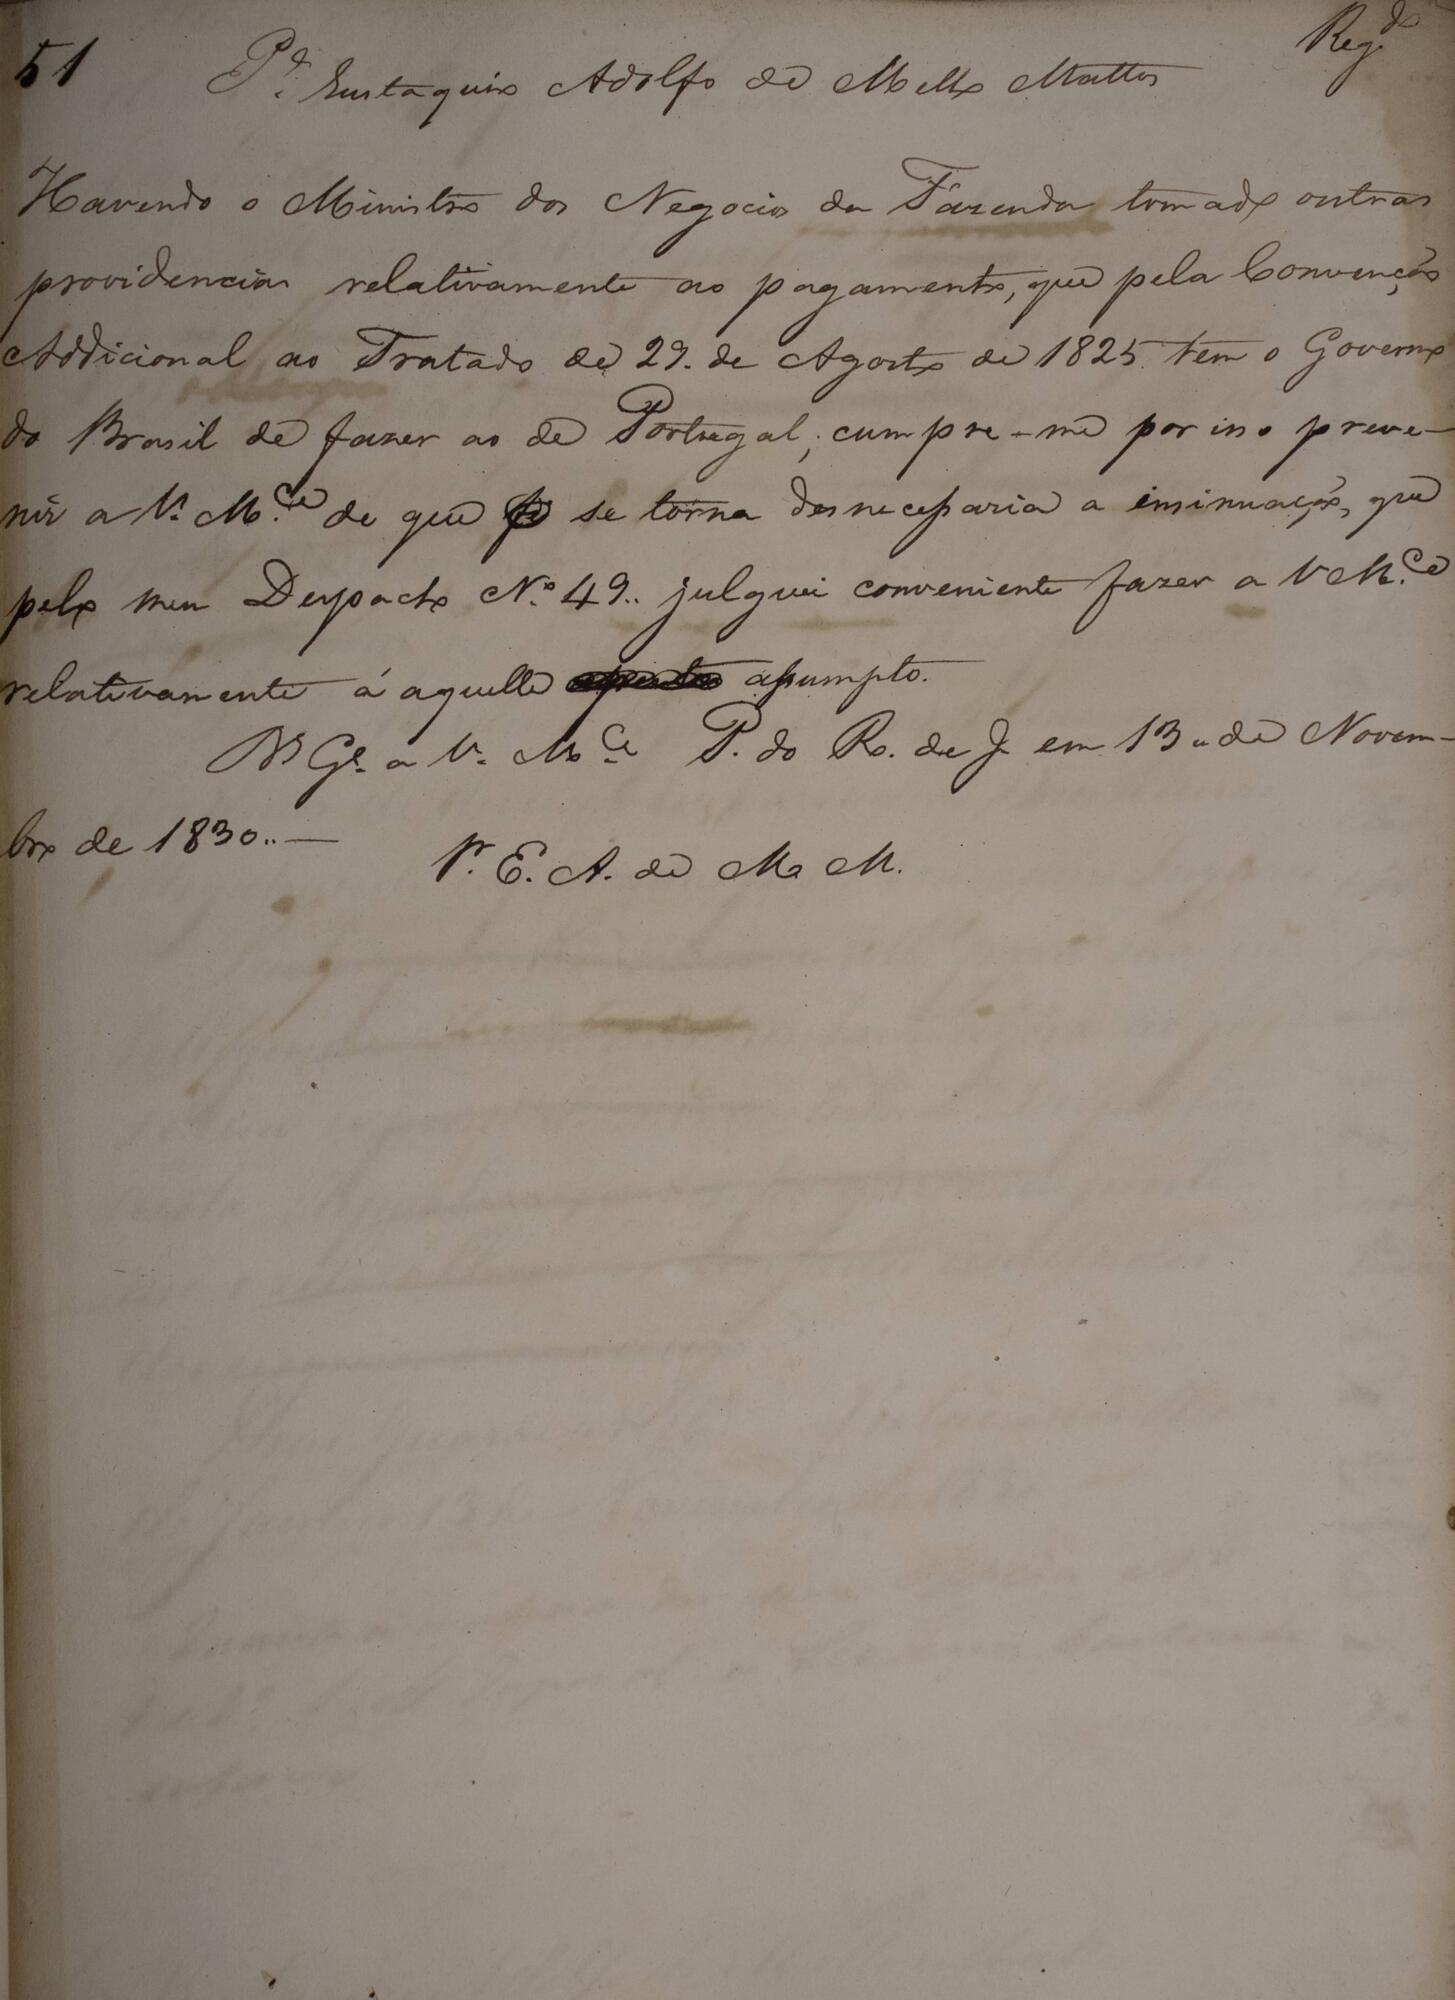 51
Reg.do
P.a Eustaquio Adolfo de Mello Mattos
Havendo o Ministro dos Negocios da Fazenda tomado outras
providencias relativamente ao pagamento, que pela Convenção
Addicional ao Tratado de 29. de Agosto de 1825 tem o Governo
do Brasil de fazer ao de Portugal; cumpre-me por isso preve-
nir a V. M.ce de que se torna desnecessaria a insinuação, que
pelo meu Despacho N.o 49.. julguei conveniente fazer a V M.ce
relativamente á aquelle assumpto.
Ds Ge. a V. M.ce P. do R. de J. em 13.. de Novem-
bro de 1830.. —
Sr. E. A. de M. M.